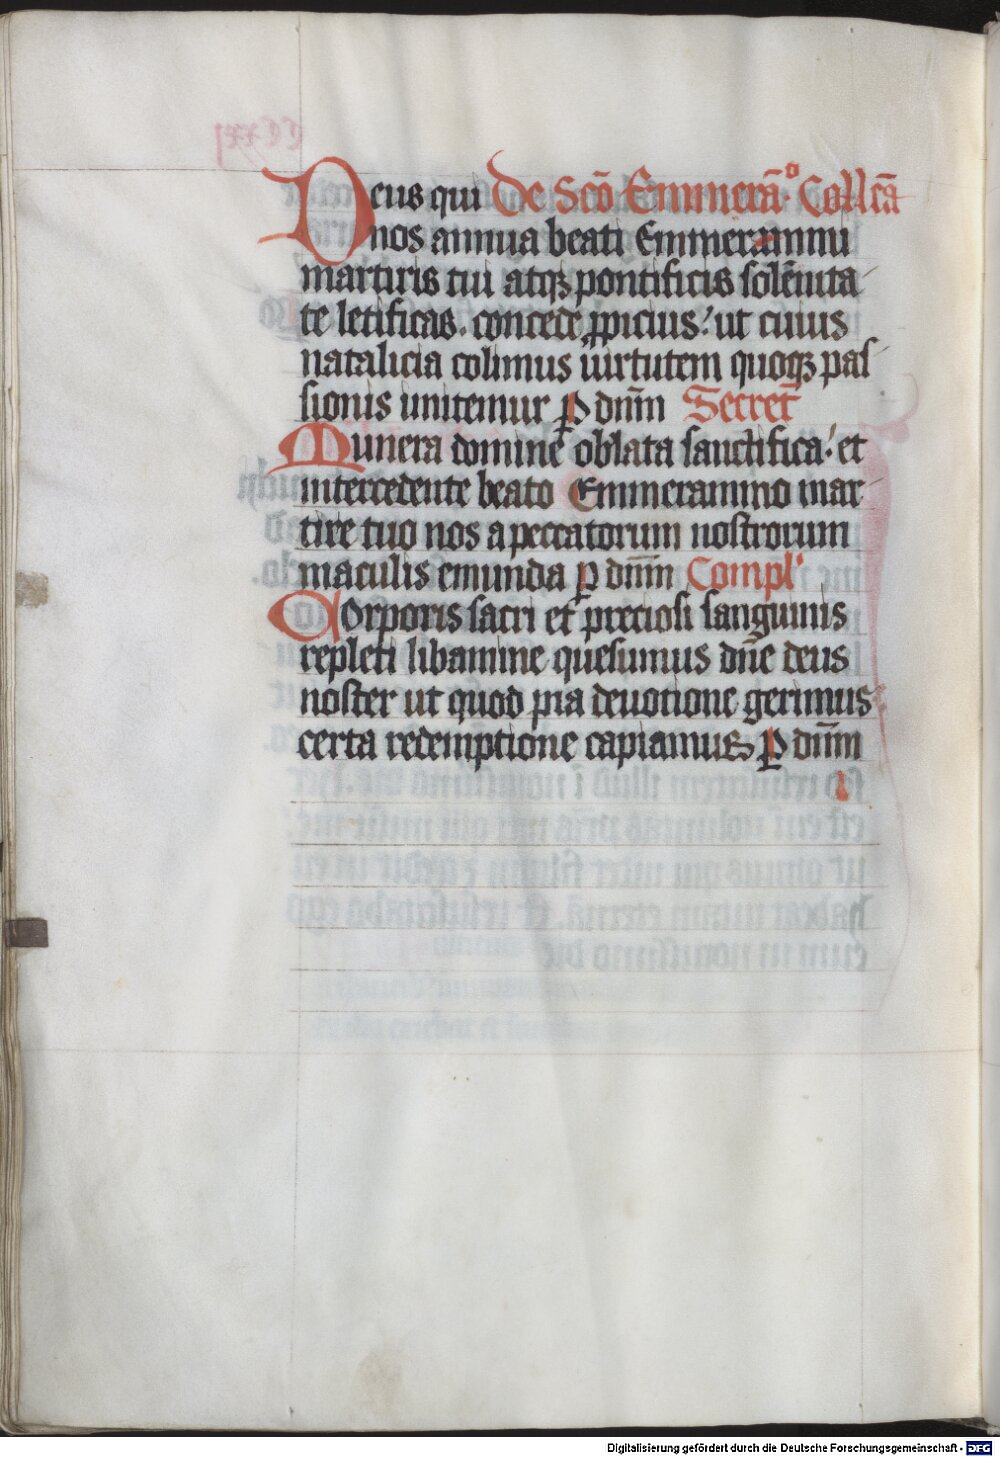 Deus qui De Scō Emmerāo. Coll̄cā
nos annua beati Emmerammi
martiris tui atqꝫ pontificis solēnita
te letificas. concede ꝓpicius: ut cuius
natalicia colimus uirtutem quoqꝫ pas
sionis imitemur ꝑ dn̄m Secret̄
Munera domine oblata sanctifica: et
intercedente beato Emmerammo mar
tire tuo nos a peccatorum nostrorum
maculis emunda ꝑ dn̄m Compl'
Corporis sacri et preciosi sanguinis
repleti libamine quesumus dn̄e deus
noster ut quod pia deuotione gerimus
certa redemptione capiamus ꝑ dn̄m
Digitalisierung gefördert durch die Deutsche Forschungsgemeinschaft - DFG